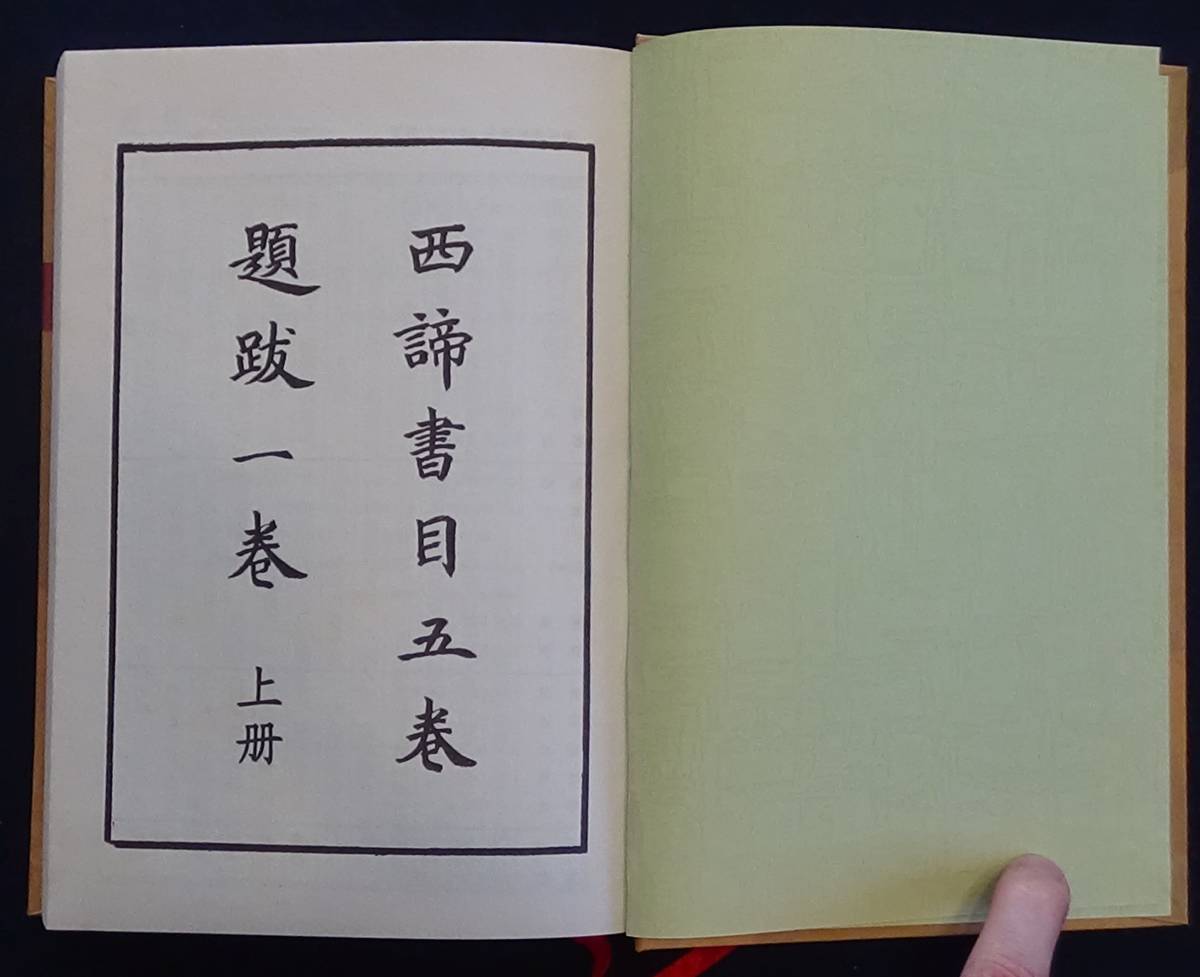 西諦書目五卷
題跋一卷 上册